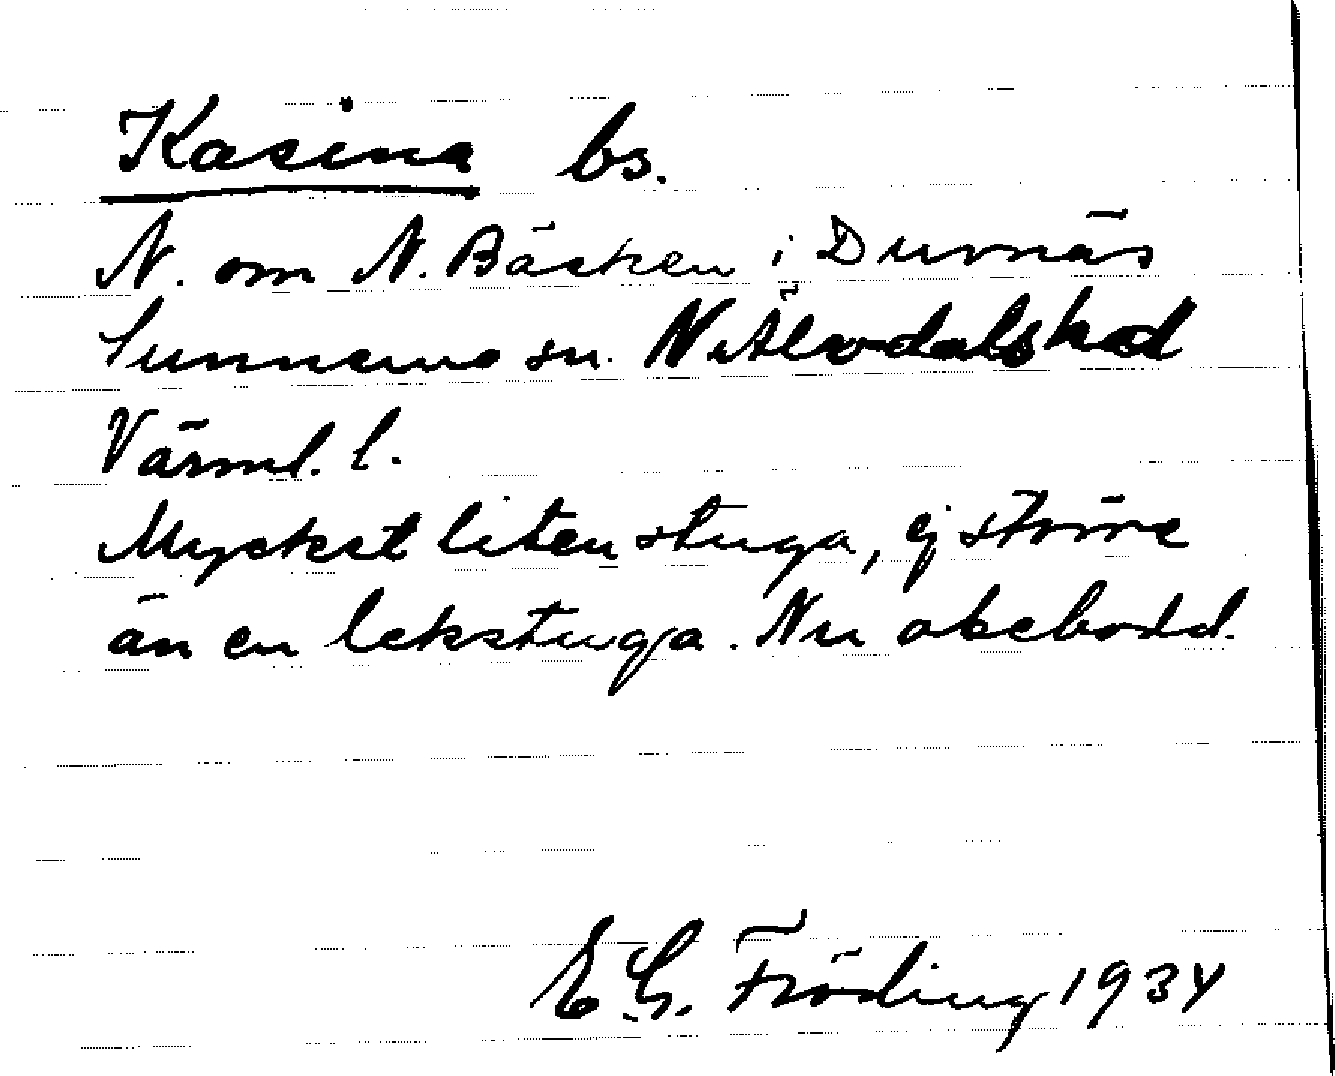 Kasina bs.
N. om N. Bäcken i Durnäs
Sunnemo sn. N. Älvdals hd
Värml. l.
Mycket liten stuga, ej större
än en lekstuga. Nu obebodd.
E. G. Fröding 1934